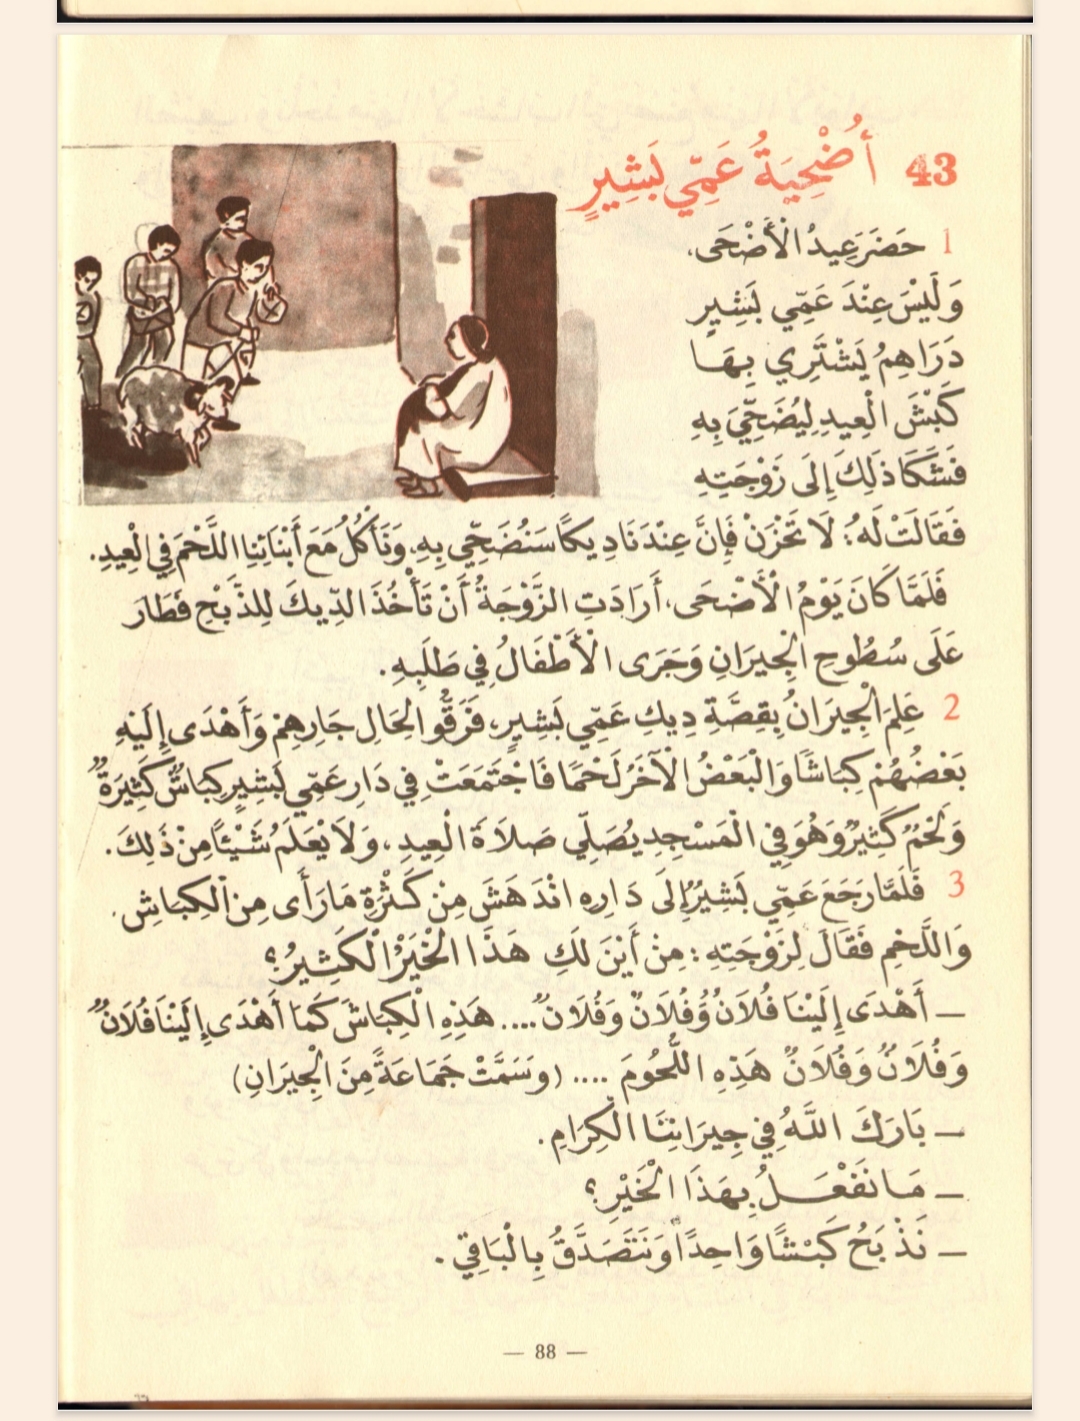 43 أُضْحِيَةُ عَمِّي بَشِيرٍ
1 حَضَرَ عِيدُ الْأَضْحَى،
وَلَيْسَ عِنْدَ عَمِّي بَشِيرٍ
دَرَاهِمُ يَشْتَرِي بِهَا
كَبْشَ الْعِيدِ لِيُضَحِّيَ بِهِ
فَشَكَا ذَلِكَ إِلَى زَوْجَتِهِ
فَقَالَتْ لَهُ: لَا تَحْزَنْ فَإِنَّ عِنْدَنَا دِيكًا سَنُضَحِّي بِهِ، وَنَأْكُلُ مَعَ أَبْنَائِنَا اللَّحْمَ فِي الْعِيدِ.
فَلَمَّا كَانَ يَوْمُ الْأَضْحَى، أَرَادَتِ الزَّوْجَةُ أَنْ تَأْخُذَ الدِّيكَ لِلذَّبْحِ فَطَارَ
عَلَى سُطُوحِ الْجِيرَانِ وَجَرَى الْأَطْفَالُ فِي طَلَبِهِ.
2 عَلِمَ الْجِيرَانُ بِقِصَّةِ دِيكِ عَمِّي بَشِيرٍ، فَرَقُّوا لِحَالِ جَارِهِمْ وَأَهْدَى إِلَيْهِ
بَعْضُهُمْ كِبَاشًا وَالْبَعْضُ الْآخَرُ لَحْمًا فَاجْتَمَعَتْ فِي دَارِ عَمِّي بَشِيرٍ كِبَاشٌ كَثِيرَةٌ
وَلَحْمٌ كَثِيرٌ وَهُوَ فِي الْمَسْجِدِ يُصَلِّي صَلَاةَ الْعِيدِ، وَلَا يَعْلَمُ شَيْئًا مِنْ ذَلِكَ.
3 فَلَمَّا رَجَعَ عَمِّي بَشِيرٌ إِلَى دَارِهِ انْدَهَشَ مِنْ كَثْرَةِ مَا رَأَى مِنَ الْكِبَاشِ
وَاللَّحْمِ فَقَالَ لِزَوْجَتِهِ: مِنْ أَيْنَ لَكِ هَذَا الْخَيْرُ الْكَثِيرُ؟
ـ أَهْدَى إِلَيْنَا فُلَانٌ وَفُلَانٌ وَفُلَانٌ.... هَذِهِ الْكِبَاشَ كَمَا أَهْدَى إِلَيْنَا فُلَانٌ
وَفُلَانٌ وَفُلَانٌ هَذِهِ اللُّحُومَ .... (وَسَمَّتْ جَمَاعَةً مِنَ الْجِيرَانِ)
ـ بَارَكَ اللَّهُ فِي جِيرَانِنَا الْكِرَامِ.
ـ مَا نَفْعَلُ بِهَذَا الْخَيْرِ؟
ـ نَذْبَحُ كَبْشًا وَاحِدًا وَنَتَصَدَّقُ بِالْبَاقِي.
— 88 —